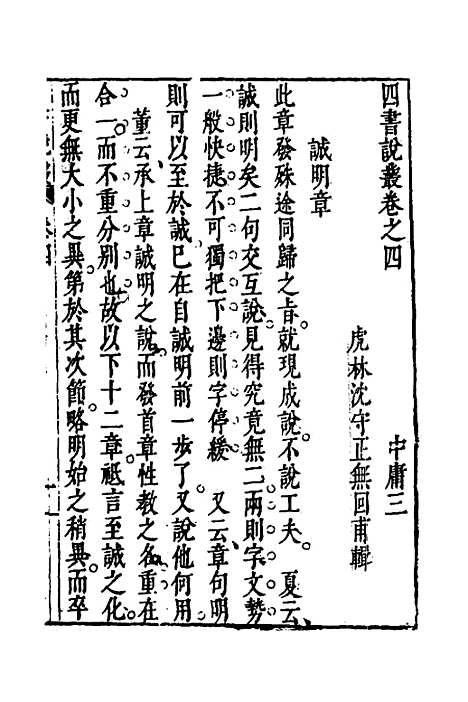 四書說叢卷之四
中庸三
虎林沈守正無回甫輯
誠明章
此章發殊途同歸之旨。就現成說。不說工夫。 夏云、
誠則明矣二句交互說。見得究竟無二。兩則字文勢
一般快捷。不可獨把下邊則字停緩 又云、章句明
則可以至於誠已在自誠明前一步了。又說他何用
董云、承上章誠明之說。而發首章性教之名。重在
合一。而不重分別也。故以下十二章。祗言至誠之化。
而更無大小之異。第於其次節。略明始之稍異。而卒